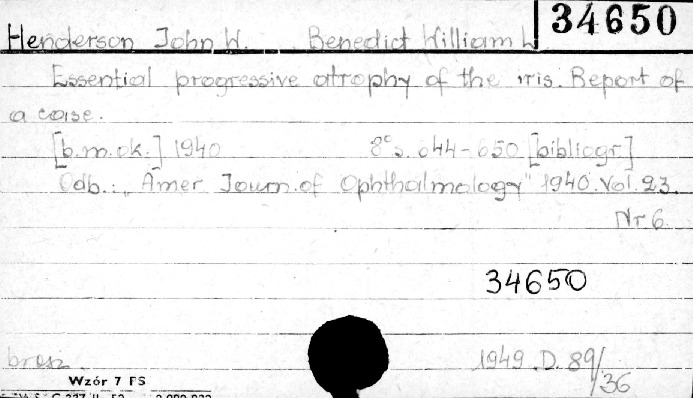 34650
Henderson John W. Benedict William L
Essential progressive atrophy of the iris. Report of
a case.
[b.m.ok.] 1940 8° s. 644-650 [bibliogr.]
Odb.: „Amer. Journ. of Ophthalmology" 1940. Vol. 23.
Nr 6.
34650
brosz. 1949. D. 89/36
Wzór 7 FS